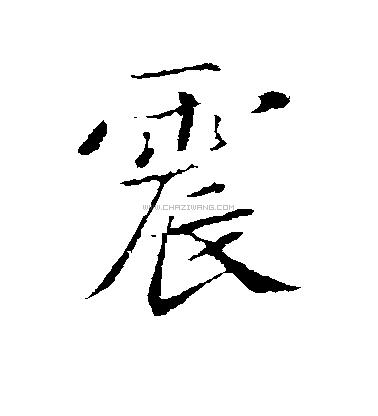 震
WWW.CHAZIWANG.COM